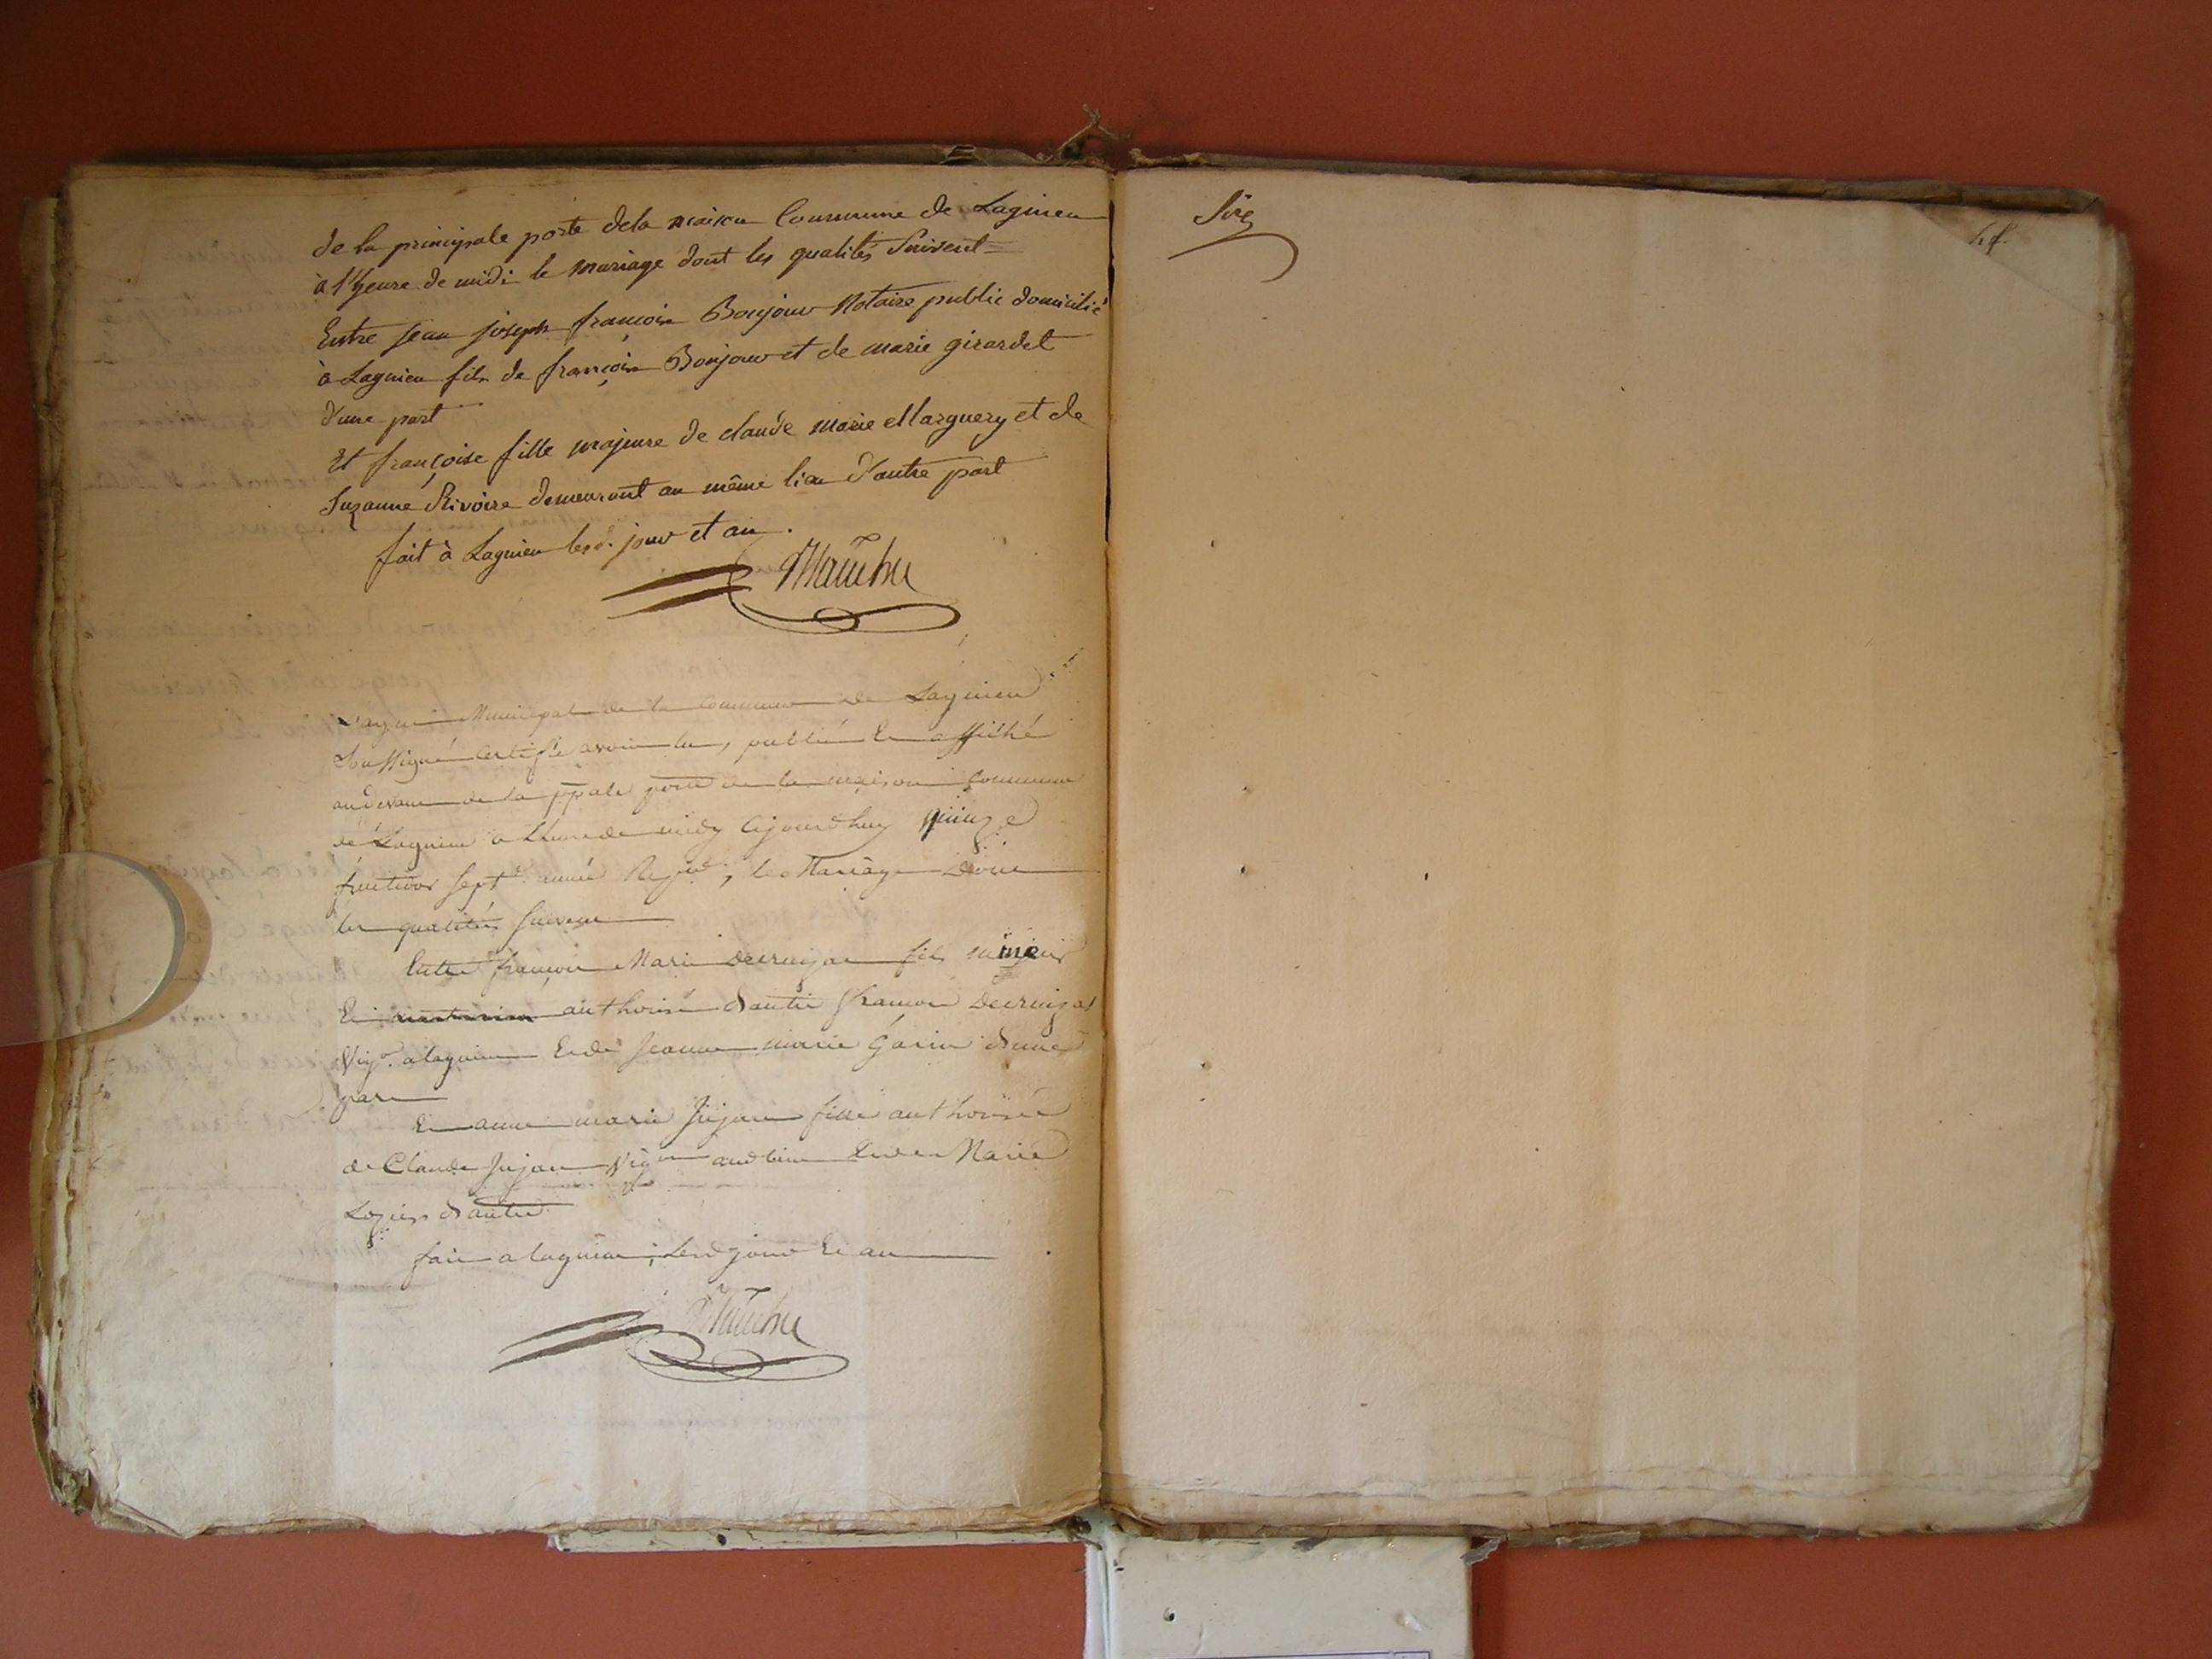 de la principale porte dela maison Commune de Lagnieu
à l'heure de midi le mariage dont les qualités Suivent =
Entre jean joseph françois Bonjour Notaire public domicilié
à Lagnieu fils de françois Bonjour et de marie girardet
d'une part
Et françoise fille majeure de claude marie Marguery et de
Suzanne Rivoire demeurant au même lieu d'autre part
fait à Lagnieu lesd. jour et an.
L'agent Municipal de la Commune de Lagnieu
Soussigné Certifie avoir lu, publié Et affiché
audevant de la ppale porte de la maison Commune
de Lagnieu a Lheure de midy Cejourdhuy quinze
fructidor sept.e année Repub.e, le Mariage Dont
les qualités Suivent
Entre françois Marie fils mineur
Et authorisé dautre françois
Vig.n a lagnieu Et de Jeanne marie Garin dune
part
Et anne marie Jujat fille authorisée
de Claude Jujat Vig.on aud lieu Et de Marie
dautre
fait a lagnieu; Lesd jour Et an